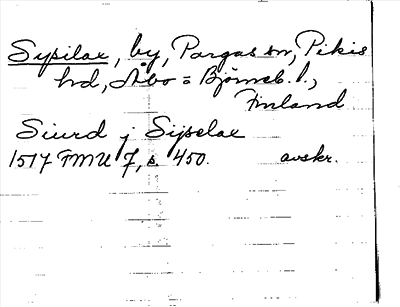 Sysilax, by, Pargas sn, Pikis
hd, Åbo = Björneb. l.,
Finland
Siurd j Sijselax
1517 FMU 7, s. 450. avskr.